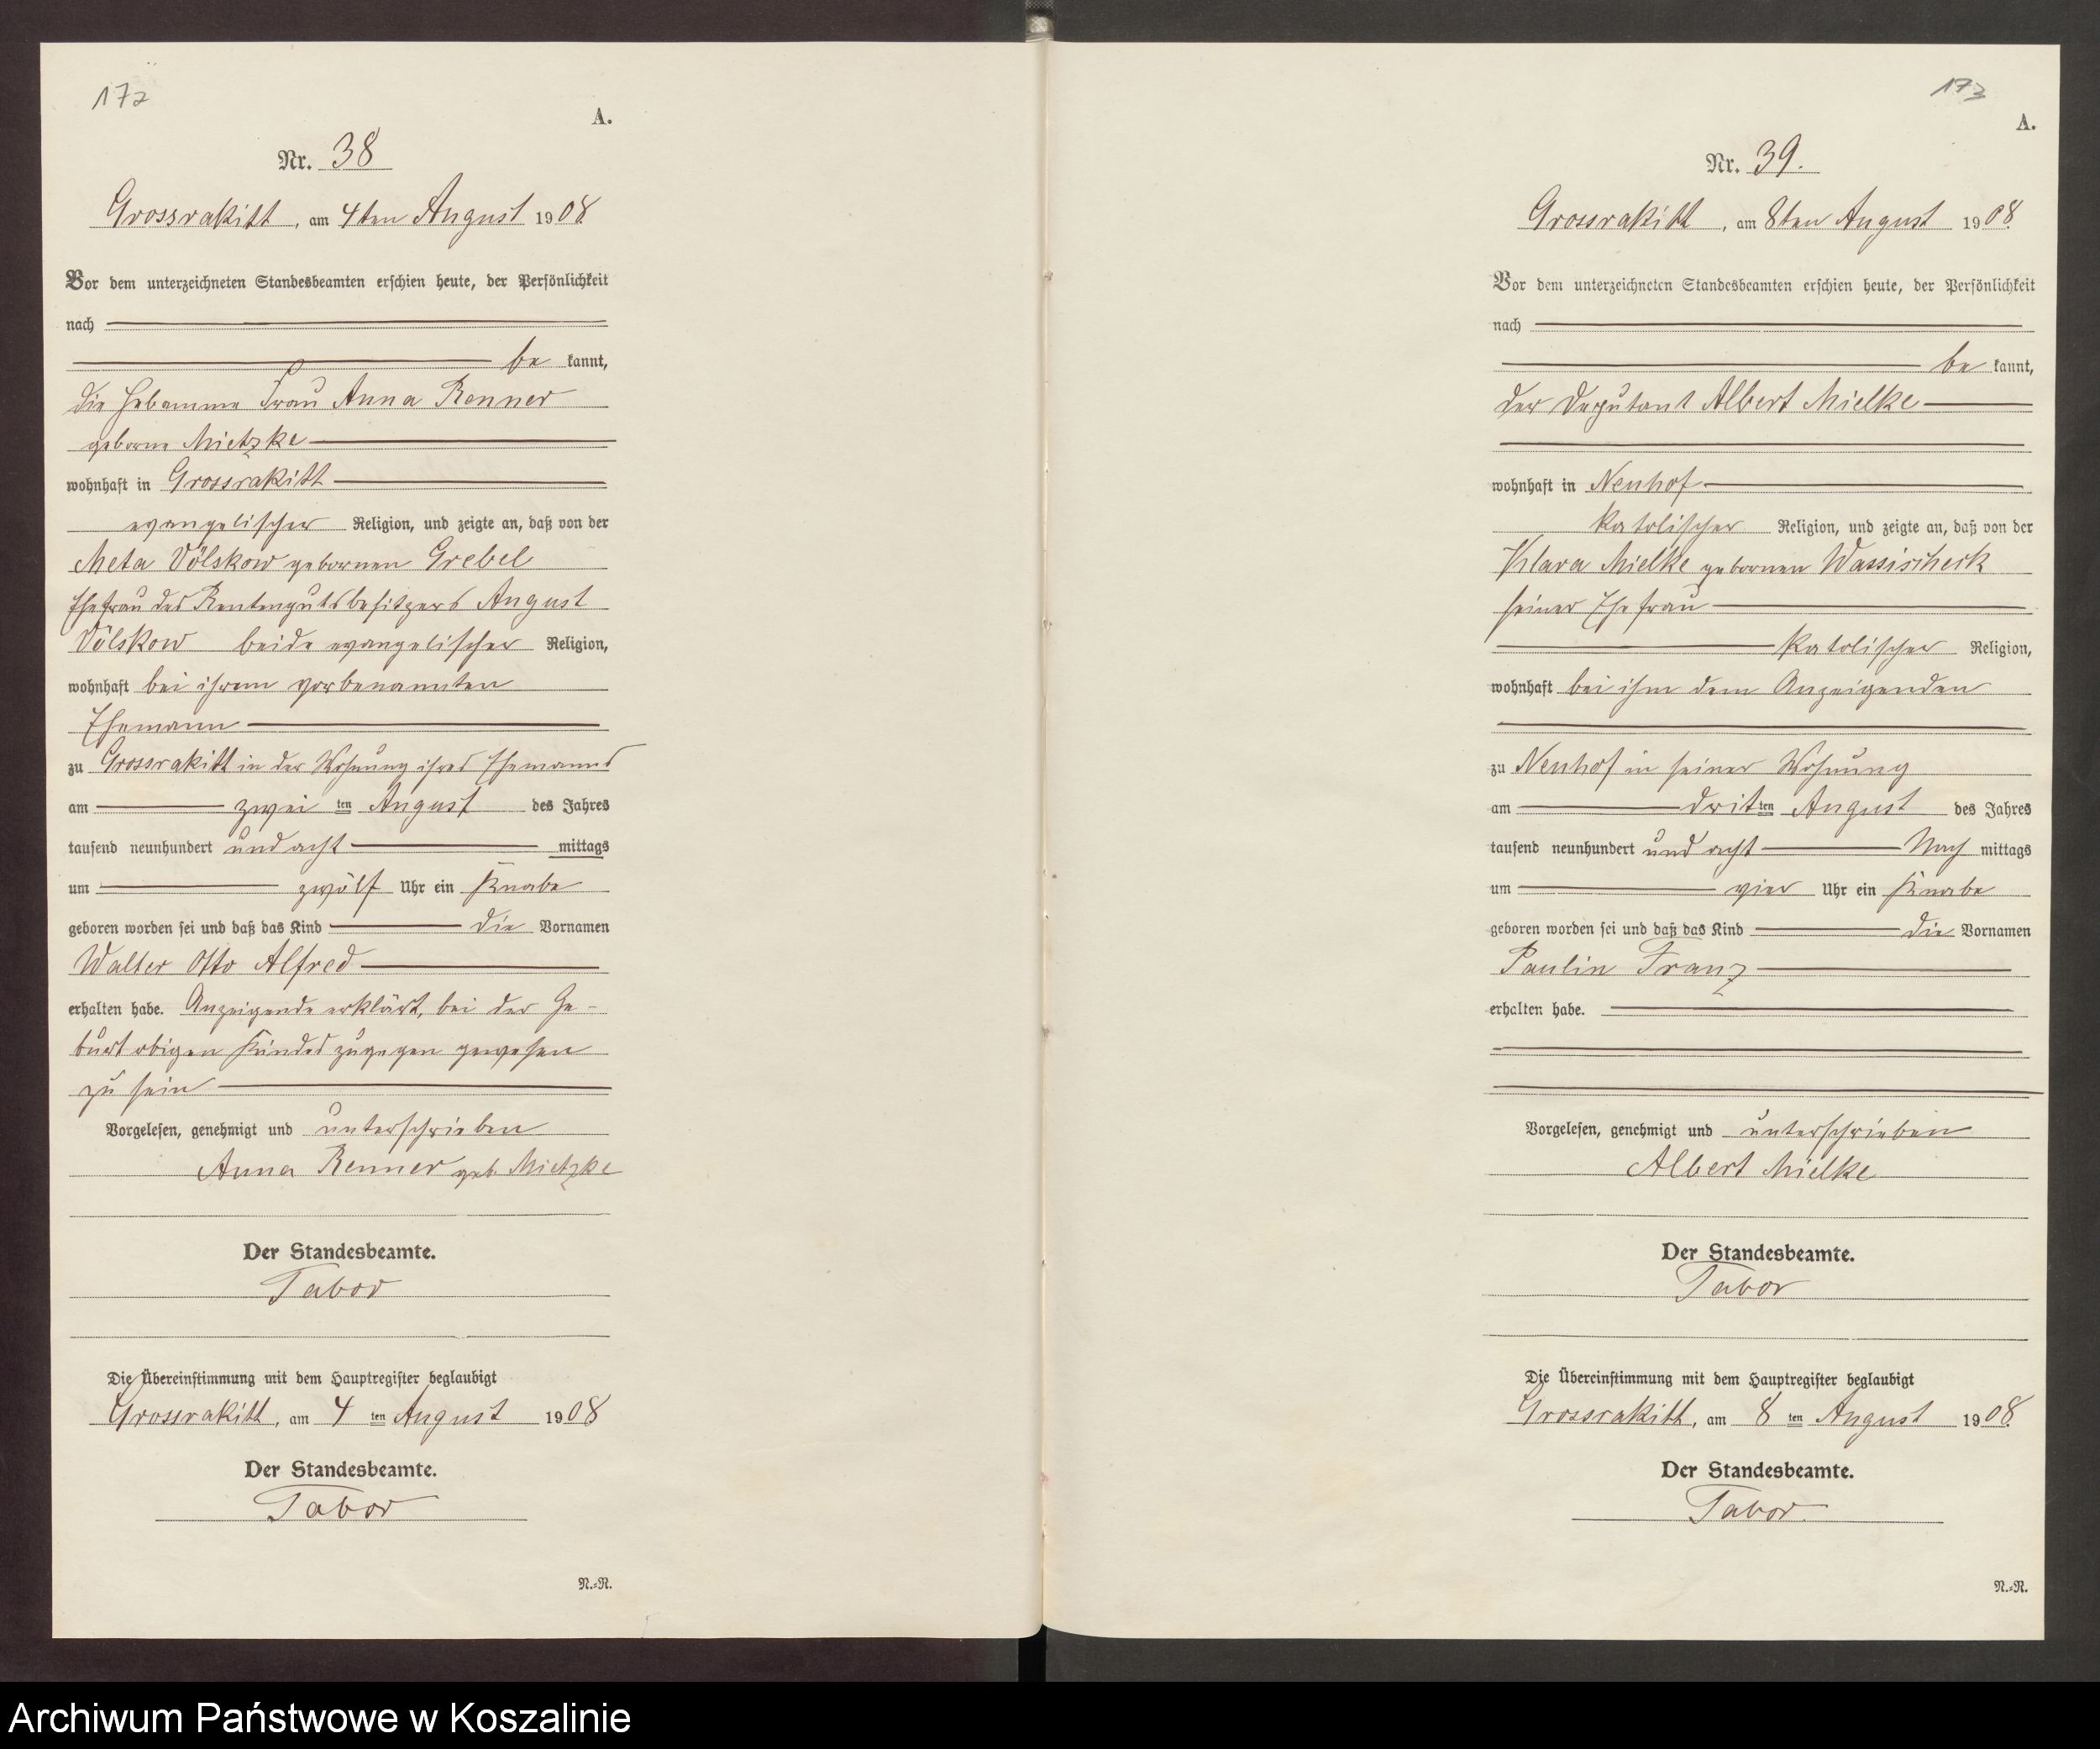 172
A.
Nr. 38
Grossrakitt, am 4ten August 1908.
Vor dem unterzeichneten Standesbeamten erschien heute, der Persönlichkeit
nach
be kannt,
die Hebamme Frau Anna Renner
geborne Mietzke
wohnhaft in Grossrakitt
evangelischer Religion, und zeigte an, daß von der
Meta Völskow gebornen Grebel
Ehefrau des Rentengutsbesitzers August
Völskow beide evangelischer Religion,
wohnhaft bei ihrem vorbenannten
Ehemann
zu Grossrakitt in der Wohnung ihres Ehemanns
am zwei ten August des Jahres
tausend neunhundert und acht mittags
um zwölf Uhr ein Knabe
geboren worden sei und daß das Kind die Vornamen
Walter Otto Alfred
erhalten habe. Anzeigende erklärt, bei der Ge-
burt obigen Kindes zugegen gewesen
zu sein
Vorgelesen, genehmigt und unterschrieben
Anna Renner geb. Mietzke
Der Standesbeamte.
Tabor
Die Übereinstimmung mit dem Hauptregister beglaubigt
Grossrakitt, am 4 ten August 1908
Der Standesbeamte.
Tabor
N.-R.
173
A.
Nr. 39.
Grossrakitt, am 8ten August 1908.
Vor dem unterzeichneten Standesbeamten erschien heute, der Persönlichkeit
nach
be kannt,
der Deputant Albert Mielke
wohnhaft in Neuhof
katolischer Religion, und zeigte an, daß von der
Klara Mielke gebornen Wassischeck
seiner Ehefrau
katolischer Religion,
wohnhaft bei ihm dem Anzeigenden
zu Neuhof in seiner Wohnung
am drit ten August des Jahres
tausend neunhundert und acht Nach mittags
um vier Uhr ein Knabe
geboren worden sei und daß das Kind die Vornamen
Paulin Franz
erhalten habe.
Vorgelesen, genehmigt und unterschrieben
Albert Mielke
Der Standesbeamte.
Tabor
Die Übereinstimmung mit dem Hauptregister beglaubigt
Grossrakitt, am 8 ten August 1908.
Der Standesbeamte.
Tabor
N.-R.
Archiwum Państwowe w Koszalinie